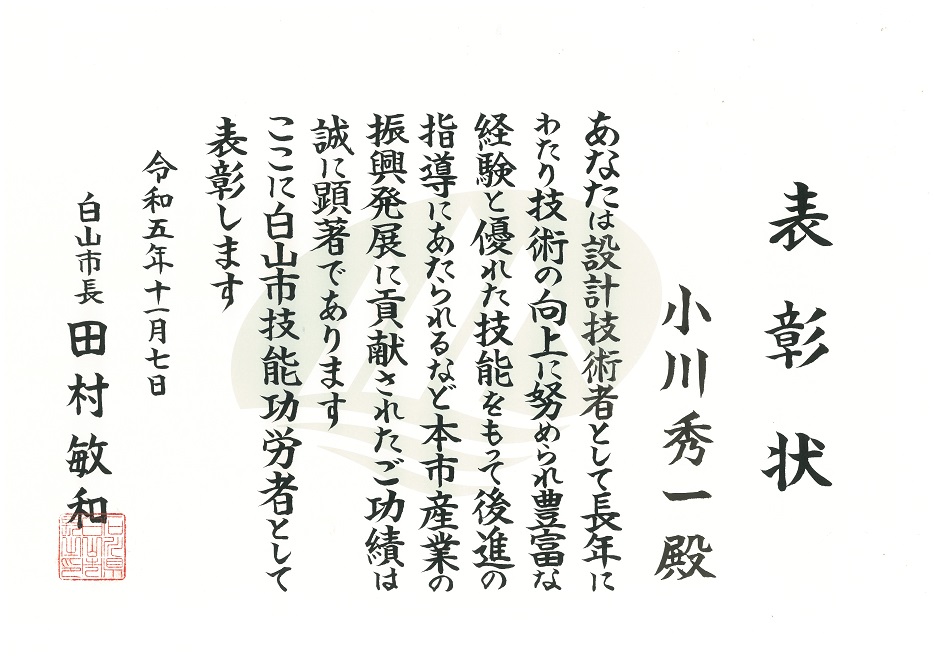 表彰状
小川秀一殿
あなたは設計技術者として長年に
わたり技術の向上に努められ豊富な
経験と優れた技能をもって後進の
指導にあたられるなど本市産業の
振興発展に貢献されたご功績は
誠に顕著であります
ここに白山市技能功労者として
表彰します
令和五年十一月七日
白山市長 田村敏和